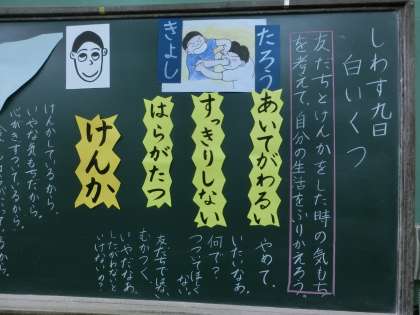 しわす九日
白いくつ
友だちとけんかをした時の気もち
を考えて、自分の生活をふりかえろう。
たろう
きよし
あいてがわるい
すっきりしない
はらがたつ
けんか
やめて。
いたいなあ。
何で?
ついてほしく
ない。
友だちでは、ない
むかつく。
いやだなあ。
したがわないと
いけないの?
けんかしているから。
いやな気もちだから。
心がもやもやしているから。